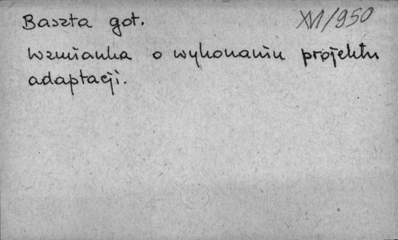 Baszta got. XVI/950
Wzmianka o wykonaniu projektu
adaptacji.